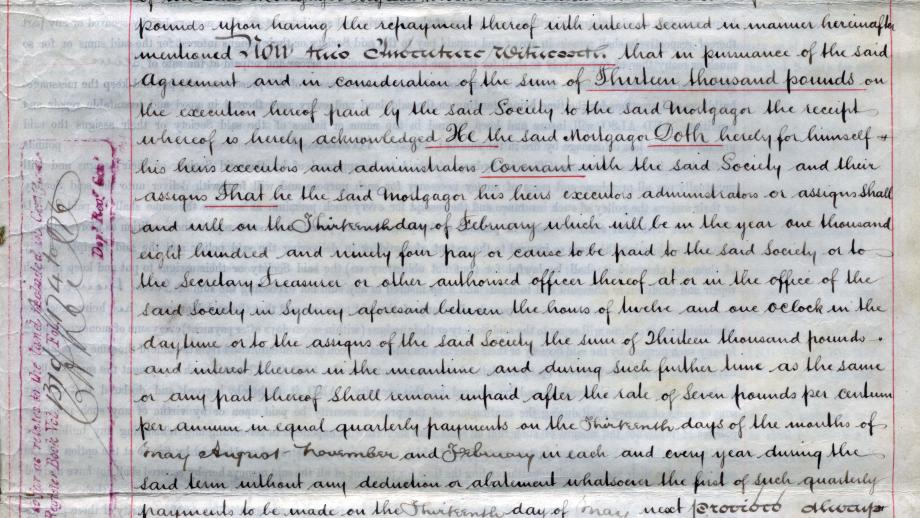 pounds upon having the repayment thereof with interest secured in manner hereinafter
mentioned Now this Indenture Witnesseth that in pursuance of the said
Agreement and in consideration of the sum of Thirteen thousand pounds on
the execution hereof paid by the said Society to the said Mortgagor the receipt
whereof is hereby acknowledged He the said Mortgagor Doth hereby for himself +
his heirs executors and administrators Covenant with the said Society and their
assigns That he the said Mortgagor his heirs executors administrators or assigns Shall
and will on the Thirteenth day of February which will be in the year one thousand
eight hundred and ninety four pay or cause to be paid to the said Society or to
the Secretary Treasurer or other authorised officer thereof at or in the office of the
said Society in Sydney aforesaid between the hours of twelve and one oclock in the
daytime or to the assigns of the said Society the sum of Thirteen thousand pounds
and interest thereon in the meantime and during such further time as the same
or any part thereof Shall remain unpaid after the rate of Seven pounds per centum
per annum in equal quarterly payments on the Thirteenth days of the months of
May August November and February in each and every year during the
said term without any deduction or abatement whatsoever the first of such quarterly
payments to be made on the Thirteenth day of May next Provided always
relates to the land
Register Book Vol Fol
Dep. Reg. Gen.